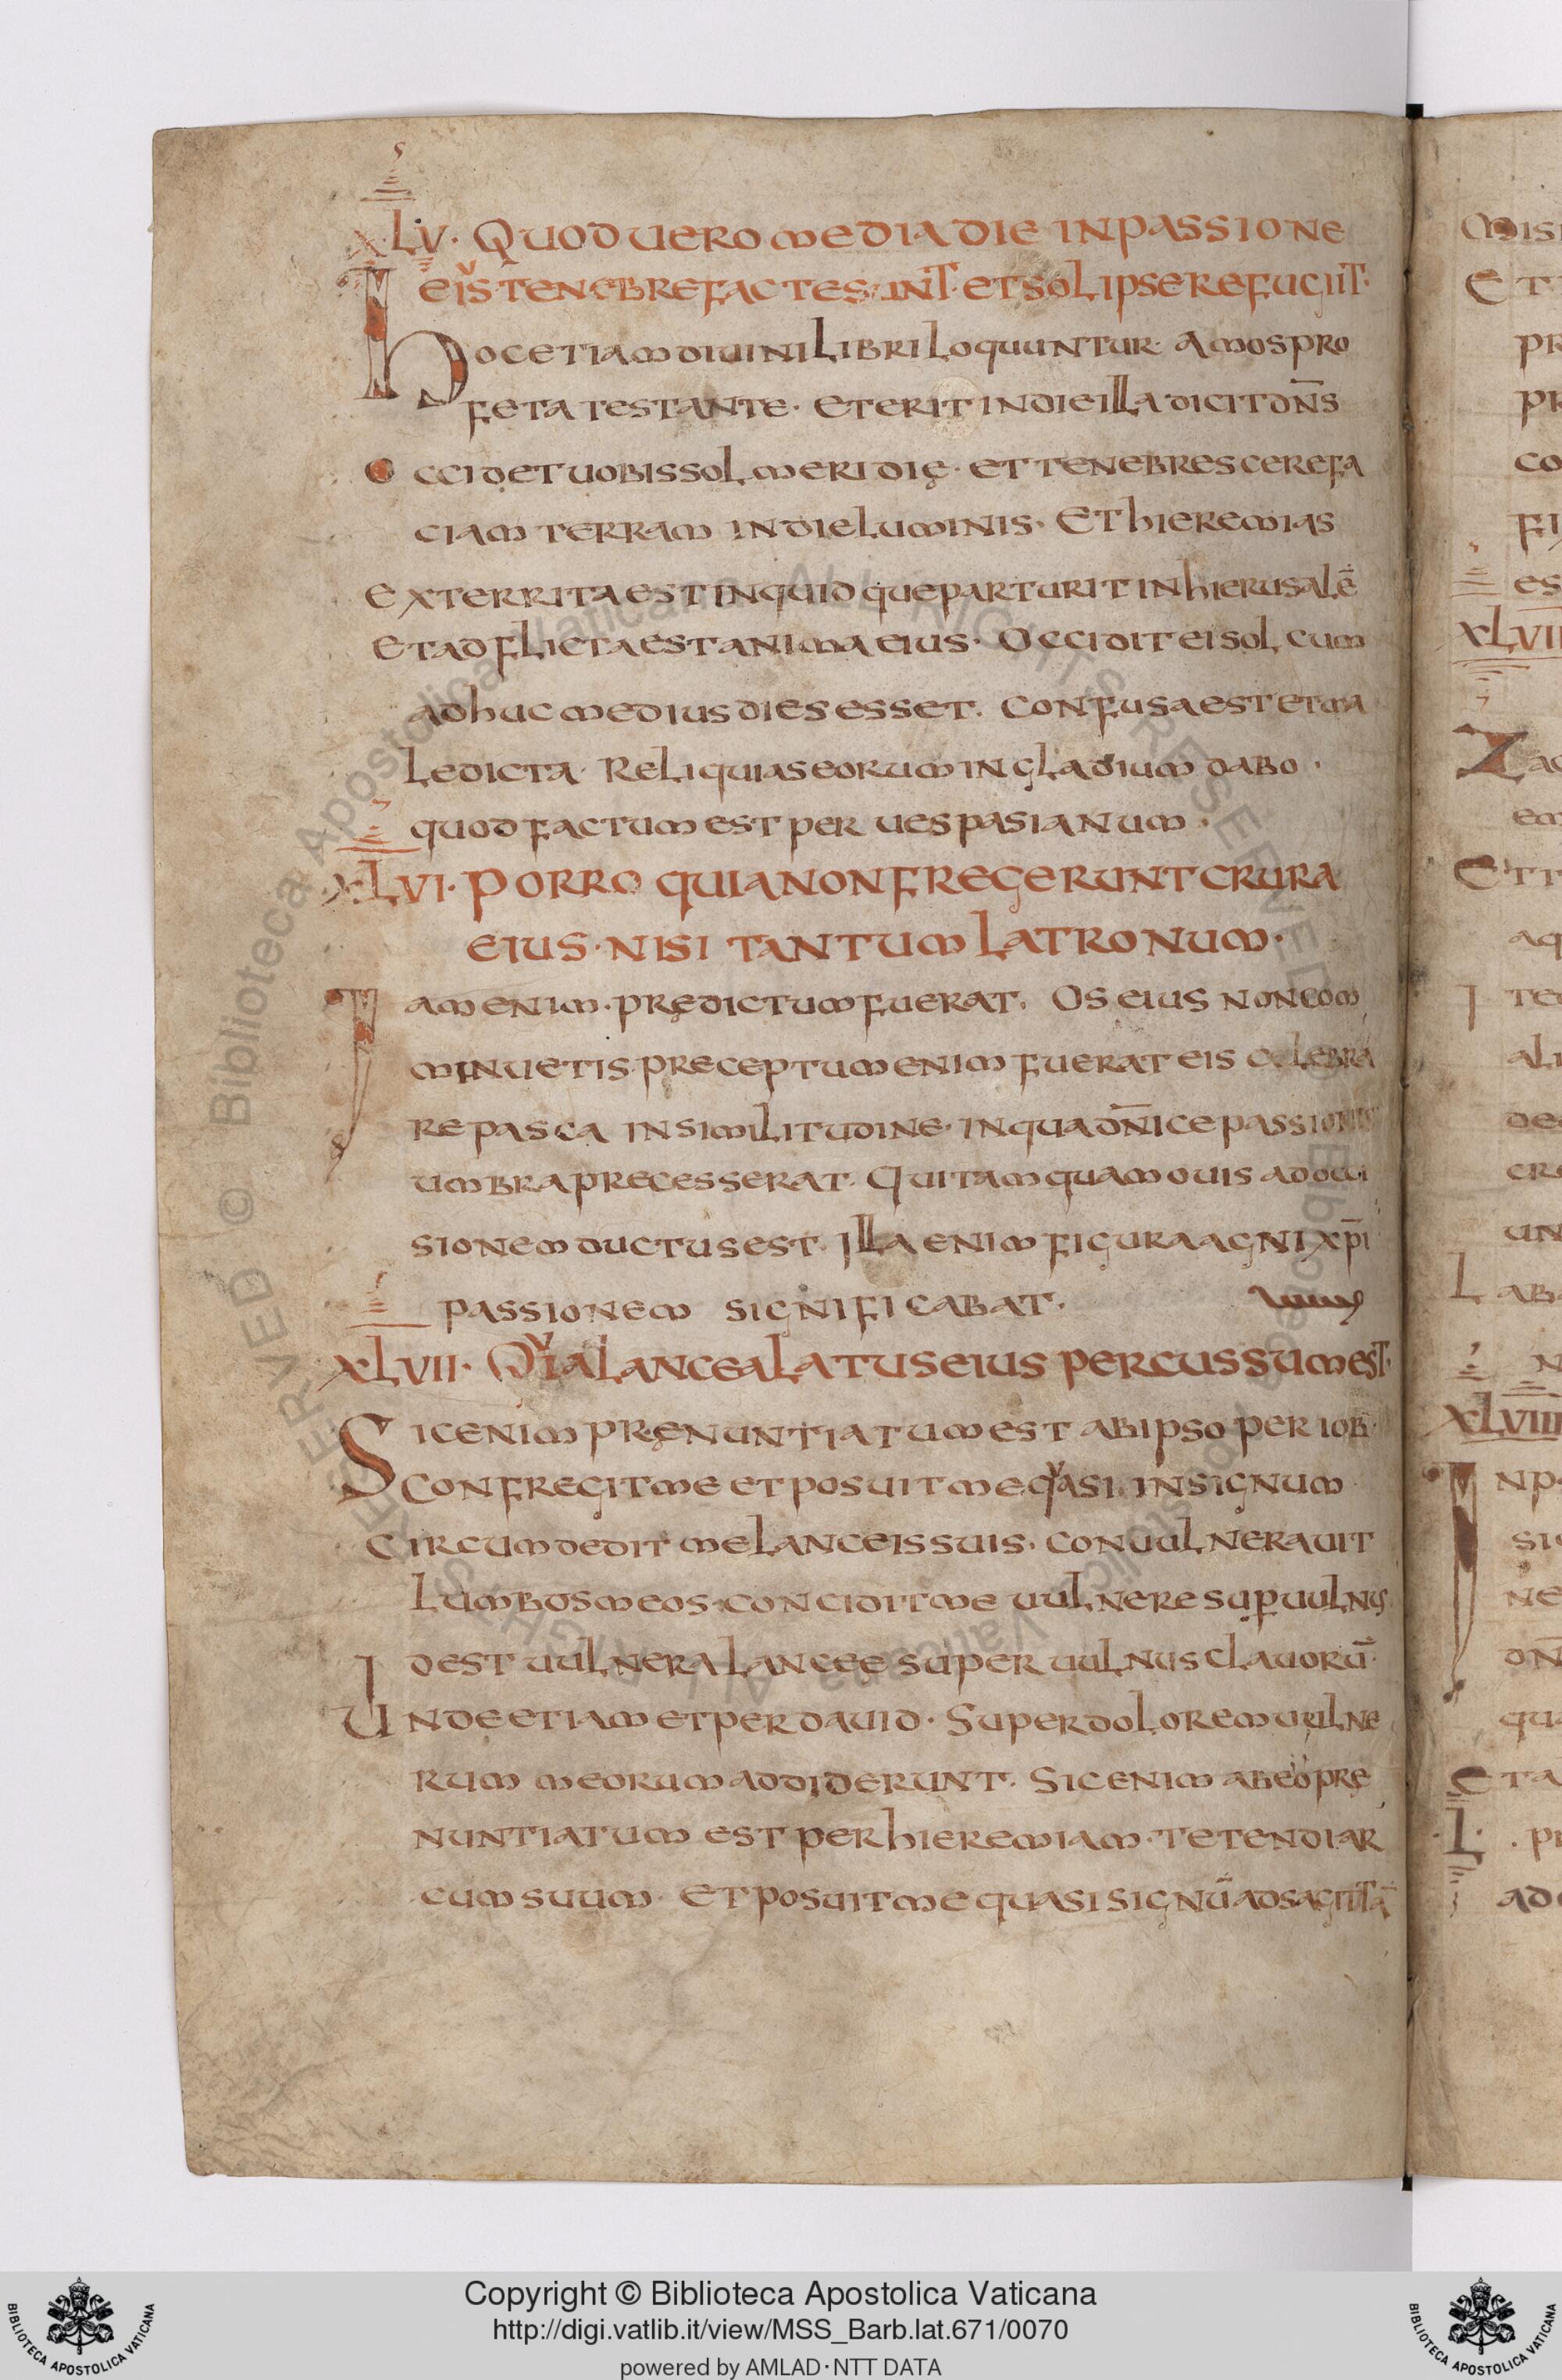 XLV· QUOD UERO MEDIA DIE IN PASSIONE
EIus TENEBRE FACTE SUNT· ET SOL IPSE REFUGIIT·
HOC ETIAM DIUINI LIBRI LOQUUNTUR· AMOS PRO
FETA TESTANTE· ET ERIT IN DIE ILLA DICIT DN̄S
OCCIDET UOBIS SOL MERIDIE· ET TENEBRESCERE FA
CIAM TERRAM IN DIE LUMINIS· ET HIEREMIAS
EXTERRITA EST INQUID QUE PARTURIT IN HIERUSALĒ
ET ADFLICTA EST ANIMA EIUS· OCCIDIT EI SOL CUM
ADHUC MEDIUS DIES ESSET· CONFUSA EST ET MA
LEDICTA· RELIQUIAS EORUM IN GLADIUM DABO·
QUOD FACTUM EST PER UESPASIANUM·
XLVI· PORRO QUIA NON FREGERUNT CRURA
EIUS· NISI TANTUM LATRONUM·
IAM ENIM· PRĘDICTUM FUERAT· OS EIUS NON COM
MINUETIS· PRECEPTUM ENIM FUERAT EIS CELEBRA
RE PASCA IN SIMILITUDINE· IN QUA DN̄ICE PASSIONIS
UMBRA PRECESSERAT· QUI TAMQUAM OUIS AD OCCI
SIONEM DUCTUS EST· ILLA ENIM FIGURA AGNI XP̄I
PASSIONEM SIGNIFICABAT·
XLVII· QUIA LANCEA LATUS EIUS PERCUSSUM EST·
SIC ENIM PRĘNUNTIATUM EST AB IPSO PER IOB·
CONFREGIT ME ET POSUIT ME QUASI IN SIGNUM
CIRCUMDEDIT ME LANCEIS SUIS· CONUULNERAUIT
LUMBOS MEOS· CONCIDIT ME UULNERE SUP UULNUS
ID EST UULNERA LANCEE SUPER UULNUS CLAUORŪ·
UNDE ETIAM ET PER DAUID· SUPER DOLOREM UULNE
RUM MEORUM ADDIDERUNT· SIC ENIM AB EO PRĘ
NUNTIATUM EST PER HIEREMIAM· TETENDI AR
CUM SUUM· ET POSUIT ME QUASI SIGNŪ AD SAGITTĀ
Copyright © Biblioteca Apostolica Vaticana
http://digi.vatlib.it/view/MSS_Barb.lat.671/0070
powered by AMLAD·NTT DATA